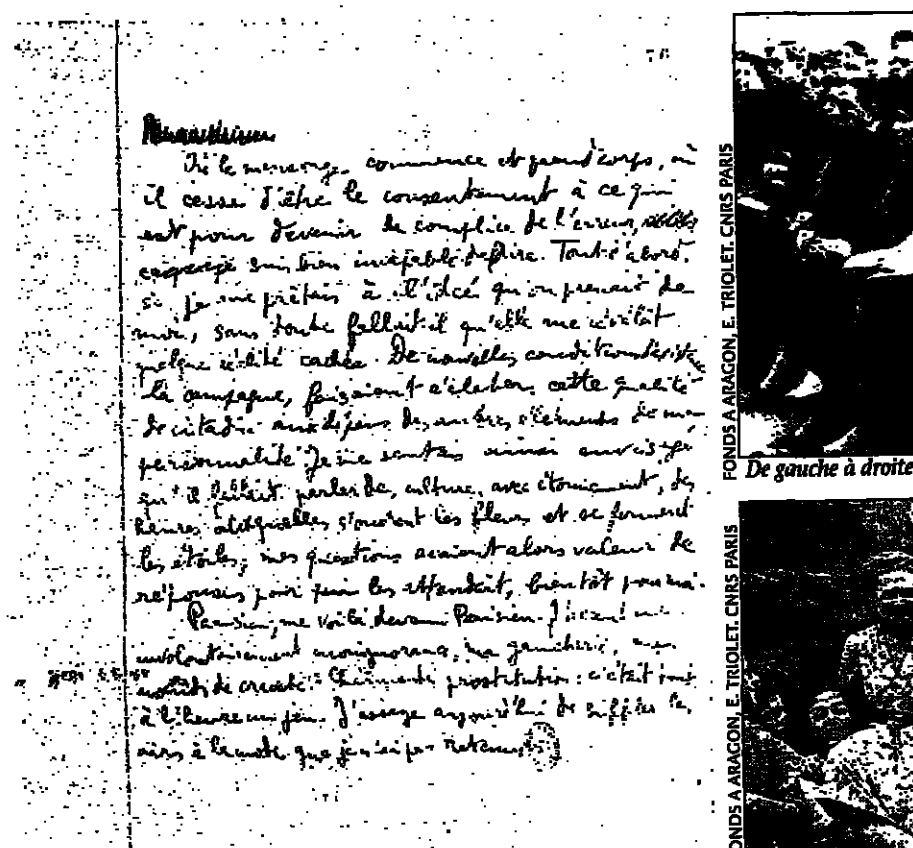 76
Où le mensonge commence et prend corps, où
il cesse d'être le consentement à ce qui
est pour devenir le complice de l'erreur,
suis bien incapable de dire. Tout d'abord,
si je me prêtais à l'idée qu'on prenait de
moi, sans doute fallait-il qu'elle me révélât
quelque réalité cachée. De nouvelles conditions
la campagne, faisaient éclater cette qualité
de citadin aux dépens des autres éléments de ma
personnalité. Je me sentais ainsi envisagé
qu'il parler de culture, avec étonnement, des
heures auxquelles s'ouvrent les fleurs et se forment
les étoiles; mes questions avaient alors valeur de
réponses pour qui les attendait, bientôt pour moi.
Parisien, me voilà devenu Parisien.
involontairement mon ignorance, ma
de cruauté. Charmante prostitution: c'était
à l'heure un jeu. J'essaye aujourd'hui de siffler les
airs à la mode que je n'ai pas retenus.
FONDS A ARAGON, E. TRIOLET. CNRS PARIS
De gauche à droite
FONDS A ARAGON, E. TRIOLET. CNRS PARIS